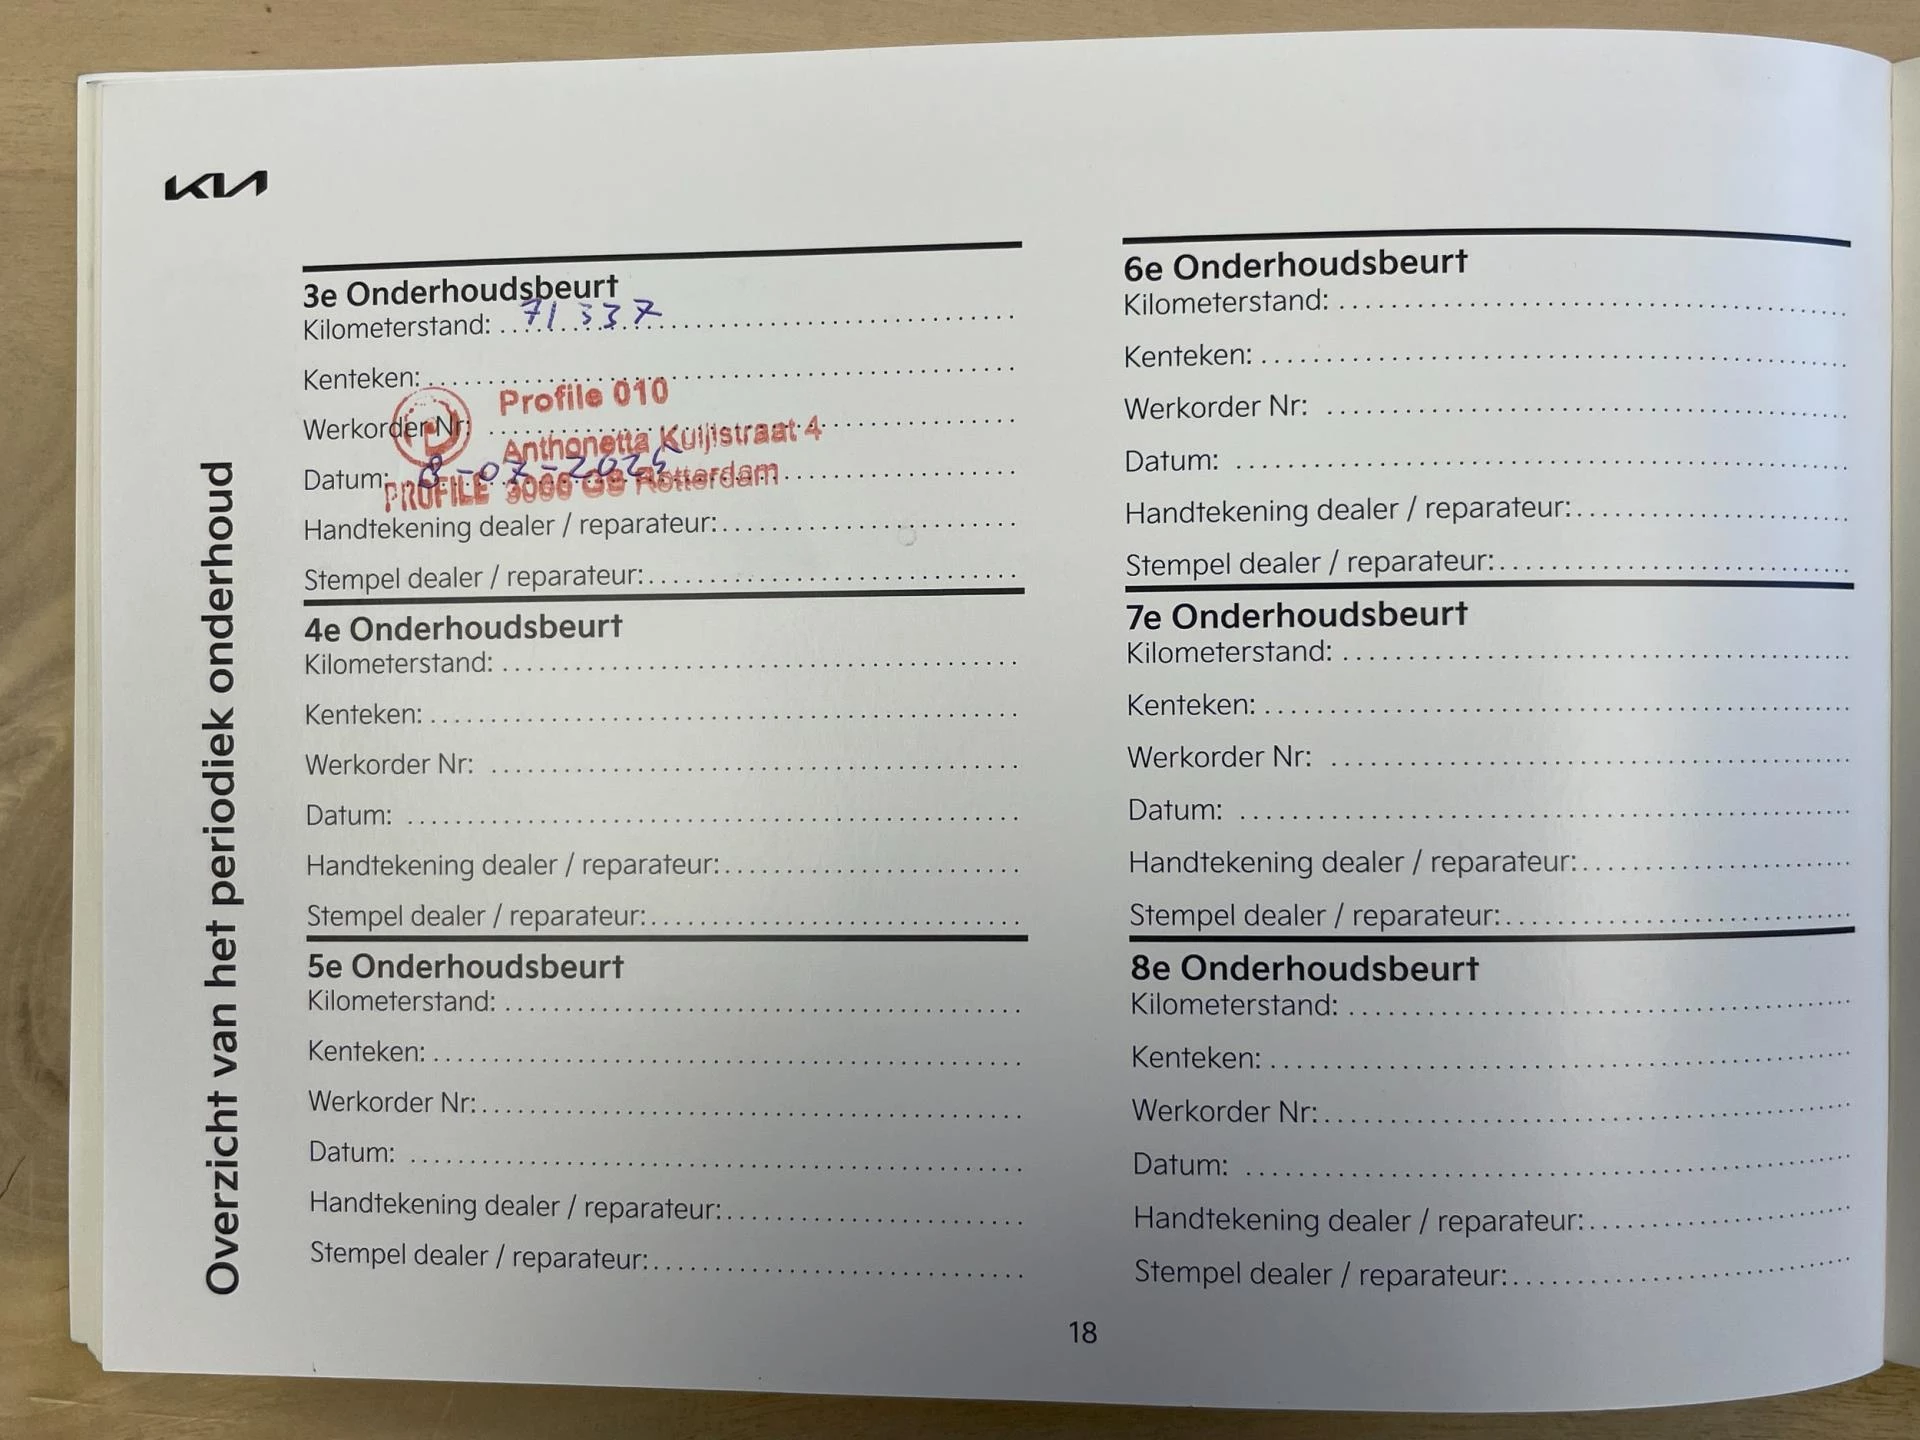 KIA
Overzicht van het periodiek onderhoud
3e Onderhoudsbeurt
Kilometerstand: 71337
Kenteken:
Profile 010
Werkorder Nr:
Anthonetta Kuijlstraat 4
Datum: 8-07-2025
PROFILE 3066 GS Rotterdam
Handtekening dealer / reparateur:
Stempel dealer / reparateur:
4e Onderhoudsbeurt
Kilometerstand:
Kenteken:
Werkorder Nr:
Datum:
Handtekening dealer / reparateur:
Stempel dealer / reparateur:
5e Onderhoudsbeurt
Kilometerstand:
Kenteken:
Werkorder Nr:
Datum:
Handtekening dealer / reparateur:
Stempel dealer / reparateur:
6e Onderhoudsbeurt
Kilometerstand:
Kenteken:
Werkorder Nr:
Datum:
Handtekening dealer / reparateur:
Stempel dealer / reparateur:
7e Onderhoudsbeurt
Kilometerstand:
Kenteken:
Werkorder Nr:
Datum:
Handtekening dealer / reparateur:
Stempel dealer / reparateur:
8e Onderhoudsbeurt
Kilometerstand:
Kenteken:
Werkorder Nr:
Datum:
Handtekening dealer / reparateur:
Stempel dealer / reparateur:
18